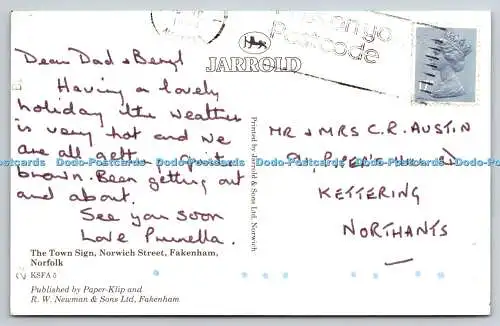 Postcode
JARROLD
Dear Dad & Beryl
Having a lovely
holiday the weather
is very hot and we
are all quite
brown. Been getting out
and about.
See you soon
Love Prunella.
MR & MRS C.R. AUSTIN
KETTERING
NORTHANTS
Printed by Jarrold & Sons Ltd, Norwich
The Town Sign, Norwich Street, Fakenham,
Norfolk
KSFA 5
Published by Paper-Klip and
R. W. Newman & Sons Ltd, Fakenham
Dodo-Postcards Dodo-Postcards Dodo-Postcards Dodo-Postcards